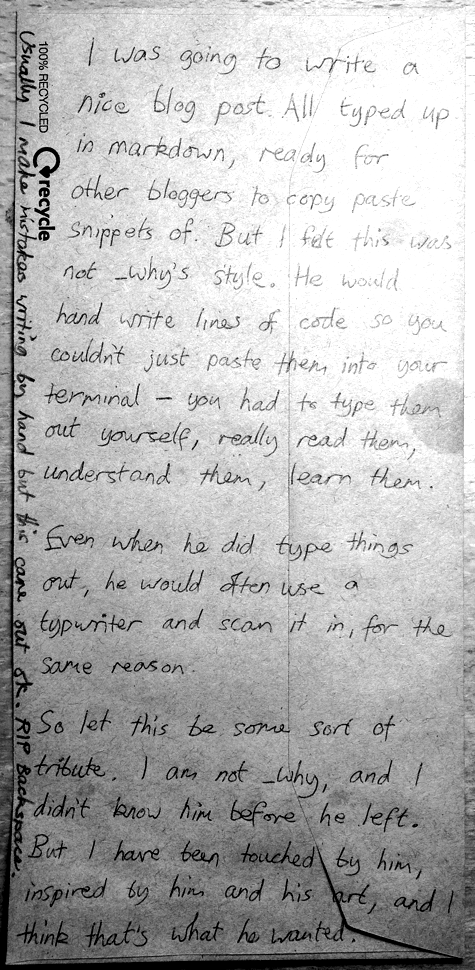 I was going to write a
nice blog post. All typed up
in markdown, ready for
other bloggers to copy paste
snippets of. But I felt this was
not _why's style. He would
hand write lines of code so you
couldn't just paste them into your
terminal – you had to type them
out yourself, really read them,
understand them, learn them.
Even when he did type things
out, he would often use a
typwriter and scan it in, for the
same reason.
So let this be some sort of
tribute. I am not _why, and I
didn't know him before he left.
But I have been touched by him,
inspired by him and his art, and I
think that's what he wanted.
Usually I make mistakes writing by hand but this came out ok. RIP Backspace.
100% RECYCLED
recycle